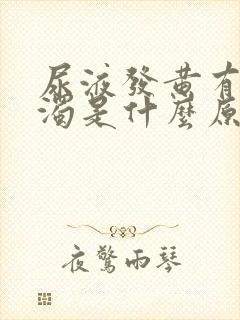 尿液發黄有
濁是什麼原
夜驚雨琴